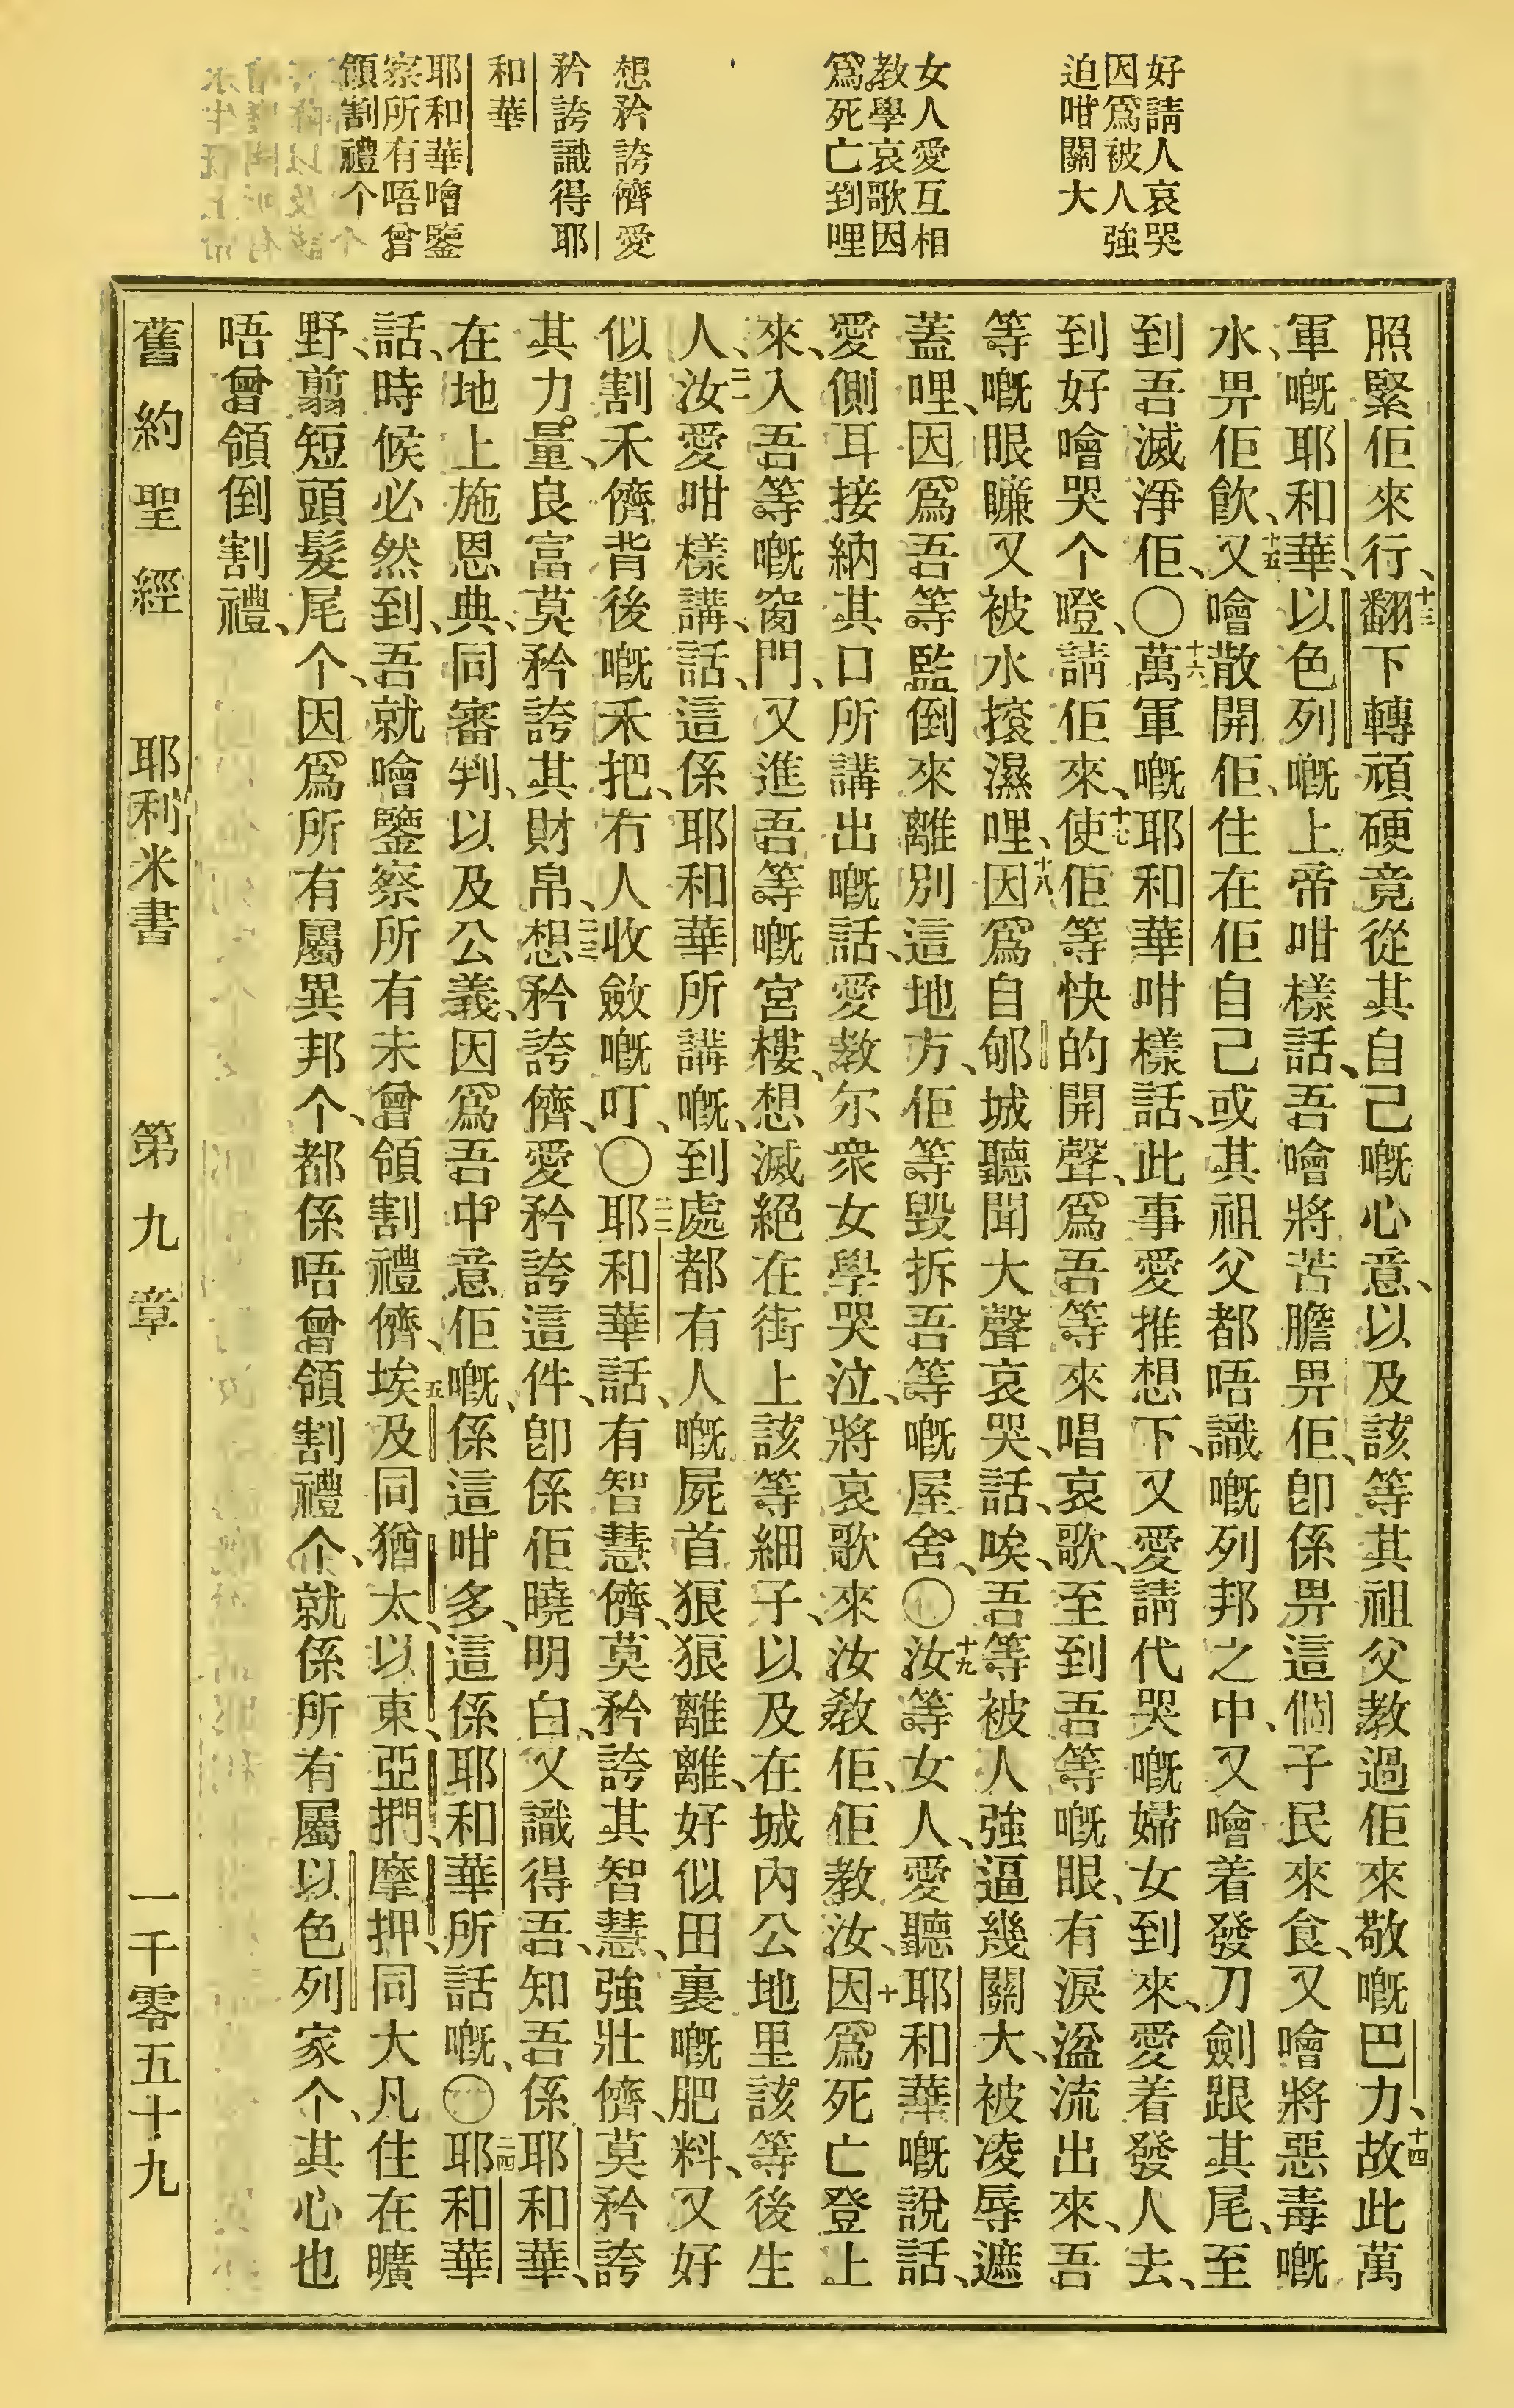 好請人哀哭
因爲被人強
迫咁關大
女人愛互相
教學哀歌因
爲死亡到哩
想矜誇儕愛
矜誇識得耶
和華
耶和華噲鑒
察所有唔曾
領割禮个
照緊佢來行、十三翻下轉頑硬竟從其自己嘅心意、以及該等其祖父教過佢來敬嘅巴力、十四故此萬
軍嘅耶和華、以色列嘅上帝咁樣話、吾噲將苦膽畀佢、卽係畀這個子民來食、又噲將惡毒嘅
水、畀佢飮、十五又噲散開佢、住在佢自己或其祖父都唔識嘅列邦之中、又噲着發刀劍跟其尾、至
到吾滅淨佢、〇十六萬軍嘅耶和華咁樣話、此事愛推想下、又愛請代哭嘅婦女到來、愛着發人去、
到好噲哭个嶝、請佢來、十七使佢等快的開聲、爲吾等來唱哀歌、至到吾等嘅眼、有淚湓流出來、吾
等嘅眼㬠又被水㨰濕哩、十八因爲自郇城聽聞大聲哀哭、話、唉、吾等被人強逼幾關大、被凌辱遮
蓋哩、因爲吾等監倒來離別這地方、佢等毀拆吾等嘅屋舍、〇十九汝等女人、愛聽耶和華嘅說話、
愛側耳接納其口所講出嘅話、愛教尔衆女學哭泣、將哀歌來汝教佢、佢教汝、十因爲死亡登上
來、入吾等嘅窗門、又進吾等嘅宮樓、想滅絕在街上該等細子、以及在城內公地里該等後生
人、二一汝愛咁樣講、話、這係耶和華所講嘅、到處都有人嘅屍首狼狼離離、好似田裏嘅肥料、又好
似割禾儕背後嘅禾把、冇人收斂嘅叮、〇二三耶和華話、有智慧儕、莫矜誇其智慧、強壯儕、莫矜誇
其力量、良富莫矜誇其財帛、二三想矜誇儕、愛矜誇這件、卽係佢曉明白、又識得吾、知吾係耶和華、
在地上施恩典、同審判、以及公義、因爲吾中意佢嘅、係這咁多、這係耶和華所話嘅、〇二四耶和華
話、時候必然到、吾就噲鑒察所有未曾領割禮儕、五埃及同猶太、以東、亞捫、摩押、同大凡住在曠
野、翦短頭髮尾个、因爲所有屬異邦个、都係唔曾領割禮个、就係所有屬以色列家个、其心也
唔曾領倒割禮、
舊約聖經 耶利米書 第九章 一千零五十九